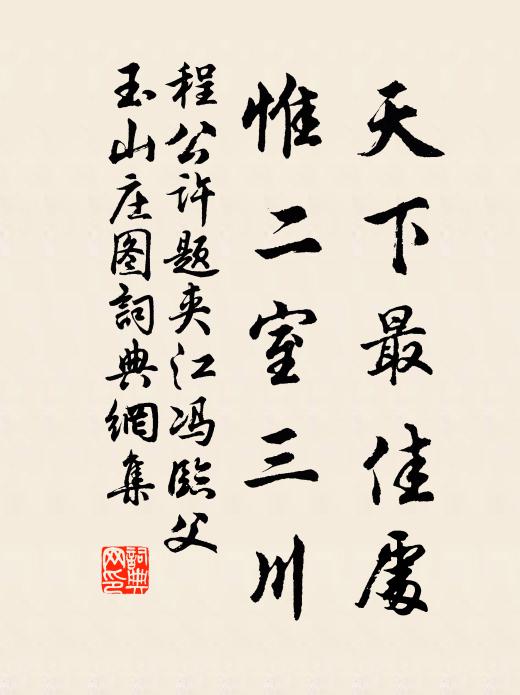 天下最佳處
惟二室三川
程公许题夹江冯臨父
玉山庄图詞典網集
詞典网印